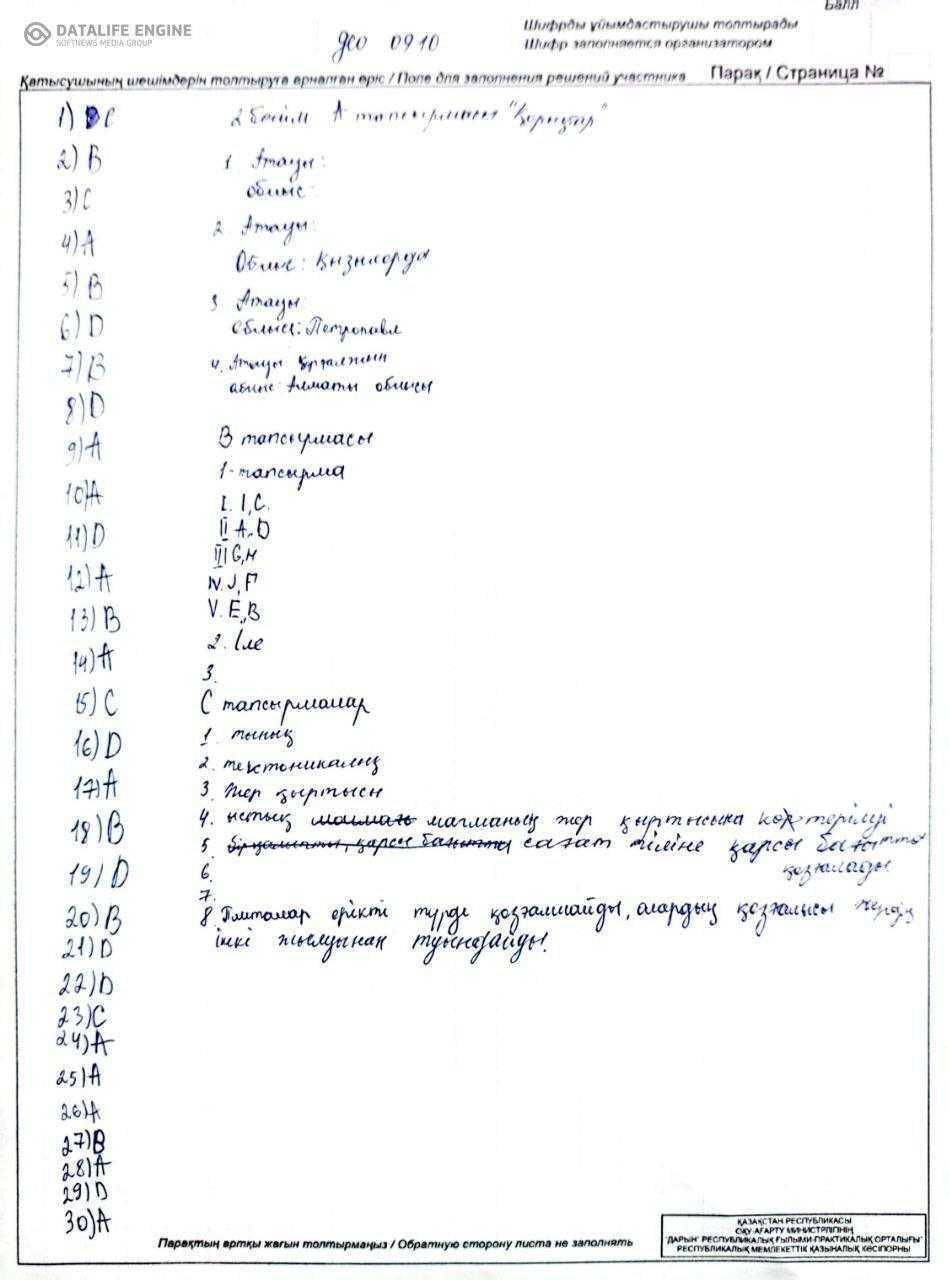 DATALIFE ENGINE
SOFTNEWS MEDIA GROUP
Балл
Шифрды ұйымдастырушы толтырады
гео 0910
Шифр заполняется организатором
Қатысушының шешімдерін толтыруға арналған өріс / Поле для заполнения решений участника Парақ / Страница №
1) C
2) B
3) C
4) A
5) B
6) D
7) B
8) D
9) A
10) A
11) D
12) A
13) B
14) A
15) C
16) D
17) A
18) B
19) D
20) B
21) D
22) D
23) C
24) A
25) A
26) A
27) B
28) A
29) D
30) A
2 бөлім А тапсырмасы "Қорықтар"
1 Атауы:
облыс:
2. Атауы:
Облыс: Қызылорда
3 Атауы
облысы: Петропавл
4. Атауы Қорғалжын
облыс: Алматы облысы
В тапсырмасы
1-тапсырма
I. I, C.
II A, D
III G, H
IV. J, F
V. E, B
2. Іле
3.
С тапсырмалар
1. тынық
2. тектоникалық
3. Жер қыртысы
4. ыстық магманың жер қыртысына көтерілуі
5. сағат тіліне қарсы бағытта
қозғалады
6.
7.
8 Плиталар еркті түрде қозғалмайды, олардың қозғалысы жердің
ішкі жылуынан туындайды.
Парақтың артқы жағын толтырмаңыз / Обратную сторону листа не заполнять
ҚАЗАҚСТАН РЕСПУБЛИКАСЫ
ОҚУ-АҒАРТУ МИНИСТРЛІГІНІҢ
"ДАРЫН" РЕСПУБЛИКАЛЫҚ ҒЫЛЫМИ-ПРАКТИКАЛЫҚ ОРТАЛЫҒЫ"
РЕСПУБЛИКАЛЫҚ МЕМЛЕКЕТТІК ҚАЗЫНАЛЫҚ КӘСІПОРНЫ